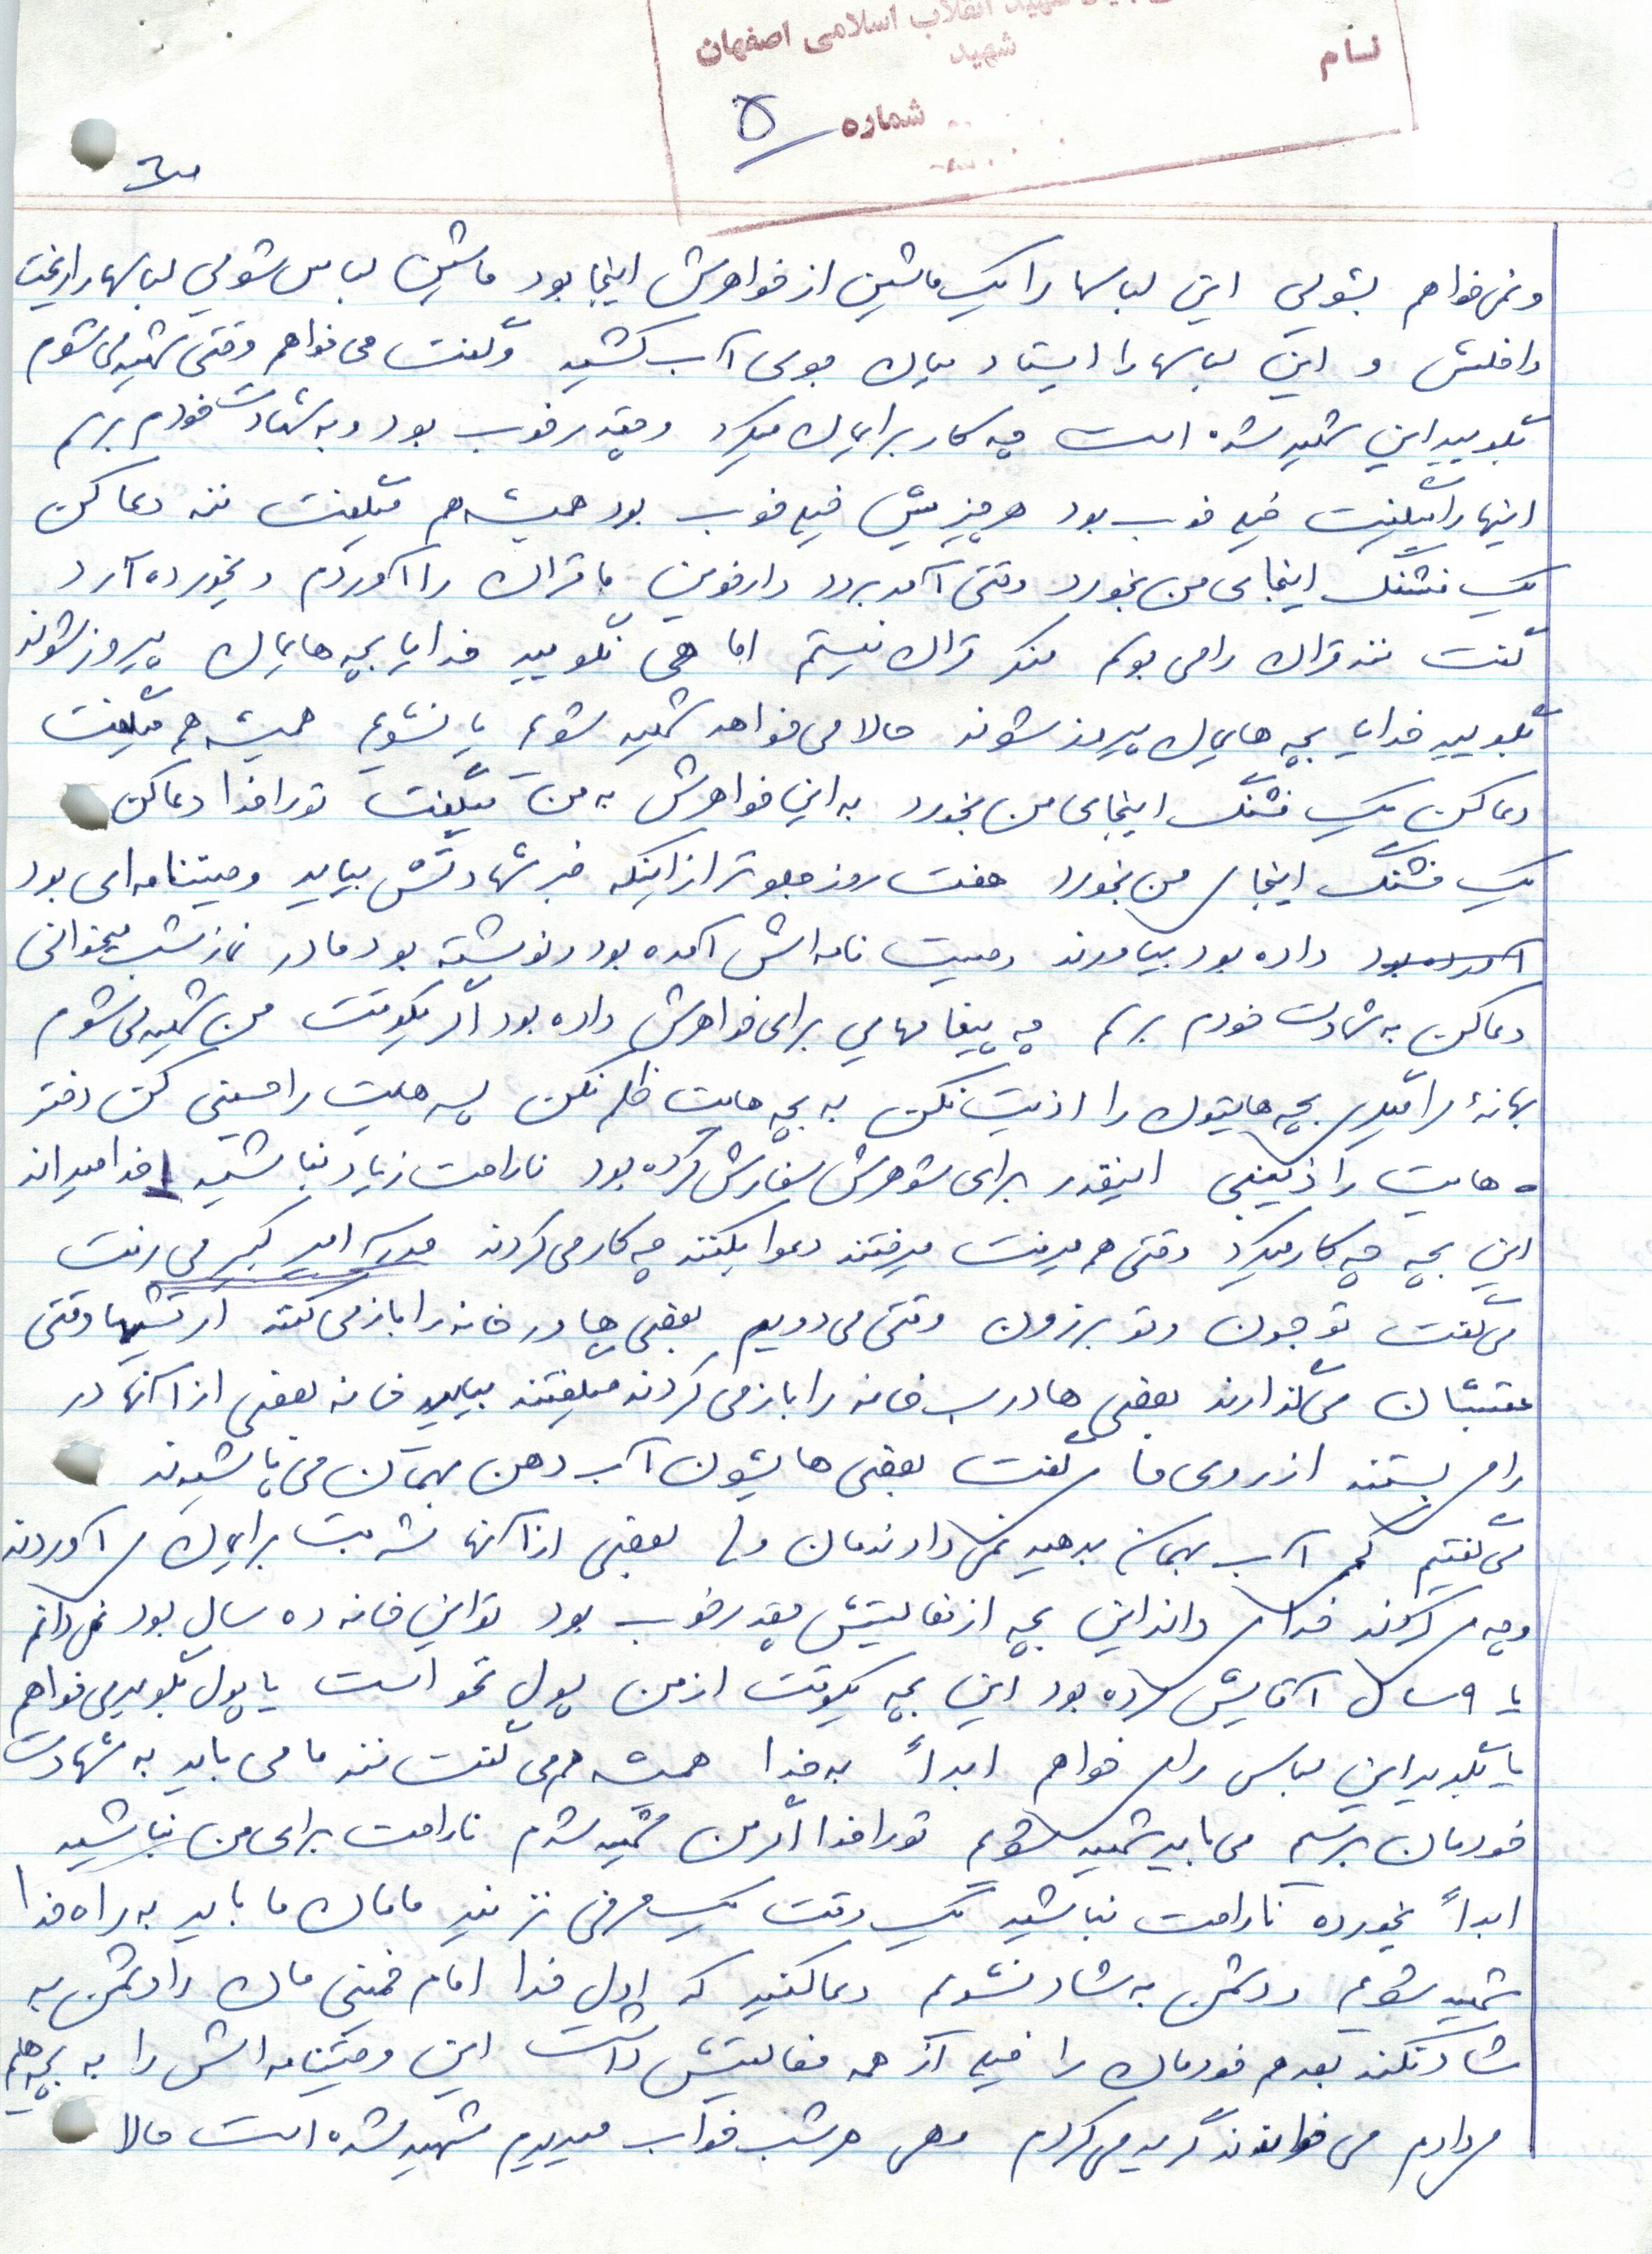 شهید انقلاب اسلامی اصفهان
شهید
نام
شماره ۵
ونمی خواهم بشویی این لباسها را یک ماشین از خواهرش اینجا بود ماشین لباس شویی لباسها را ریخت
داخلش و این لباسها را ایستاد میان جوی آب کشید و گفت می خواهم وقتی شهید می شوم
بگویید این شهید شده است چه کار برایمان میکرد و چقدر خوب بود و به شهادت خودم برسم
اینها را میگفت خیلی خوب بود هر چیزیش خیلی خوب بود همیشه هم میگفت ننه دعا کن
یک فشنگ اینجای من بخورد وقتی آمد برود ما قرآن را آوردم و بخورده آرد
گفت ننه قرآن را می بوسم منکر قرآن نیستم اما هی نگویید خدایا بچه هایمان پیروز شوند
بگویید خدایا بچه هایمان پیروز شوند حالا می خواهد شهید شویم یا نشویم همیشه هم میگفت
دعا کن یک فشنگ اینجای من بخورد به این خواهرش به من میگفت تورا خدا دعا کن
یک فشنگ اینجای من بخورد هفت روز جلوتر از اینکه خبر شهادتش بیاید وصیتنامه ای بود
داده بود بیاورند وصیت نامه اش آمده بود و نوشته بود مادر نماز شب میخوانی
دعا کن به شهادت خودم برسم چه پیغامهایی برای خواهرش داده بود اگر یکوقت من شهید می شوم
بهانه را نگیر بچه هایتون را اذیت نکن به بچه هایت ظلم نکن پسرهایت را حسینی کن دختر
هایت را زینبی اینقدر برای شوهرش سفارش کرده بود ناراحت زیاد نباشید خدا میداند
این بچه چه کار میکرد وقتی هم میرفت میرفتند دعوا بکنند چه کار می کردند مدرسه امیر کبیر می رفت
می گفت تو جون و تو برزون وقتی می دویم بعضی ها در خانه را باز می کنند ارتشیها وقتی
عقبشان می گذارند بعضی ها درب خانه را باز می کردند میگفتند بیایید خانه بعضی از آنها در
را می بستند از روی ما می گفت بعضی هایشون آب دهن بهمان می پاشیدند
می گفتیم کمی آب بهمان بدهید نمی دادندمان ولی بعضی از آنها شربت برایمان می آوردند
و چه می کردند خدا می داند این بچه از فعالیتش چقدر خوب بود تو این خانه ده سال بود نمی دانم
یا ۹ سال آقایش مرده بود این بچه یکوقت از من پول نخواست یا پول بگوید می خواهم
یا بگوید این لباس را می خواهم ابداً به خدا همیشه هم می گفت ننه ما می باید به شهادت
خودمان برسیم می باید شهید شویم تورا خدا اگر من شهید شدم ناراحت برای من نباشید
ابداً بخورده ناراحت نباشید یک وقت یک حرفی نزنید مامان ما باید به راه خدا
شهید شویم و دشمن به شاد نشویم دعا کنید که اول خدا امام خمینی مان را دشمن به
شاد نکند بعد هم خودمان را خیلی از همه فعالیتش داشت این وصیتنامه اش را به بچه هایم
می دادم می خواندند گریه می کردم و هی هر شب خواب میدیدم شهید شده است حالا